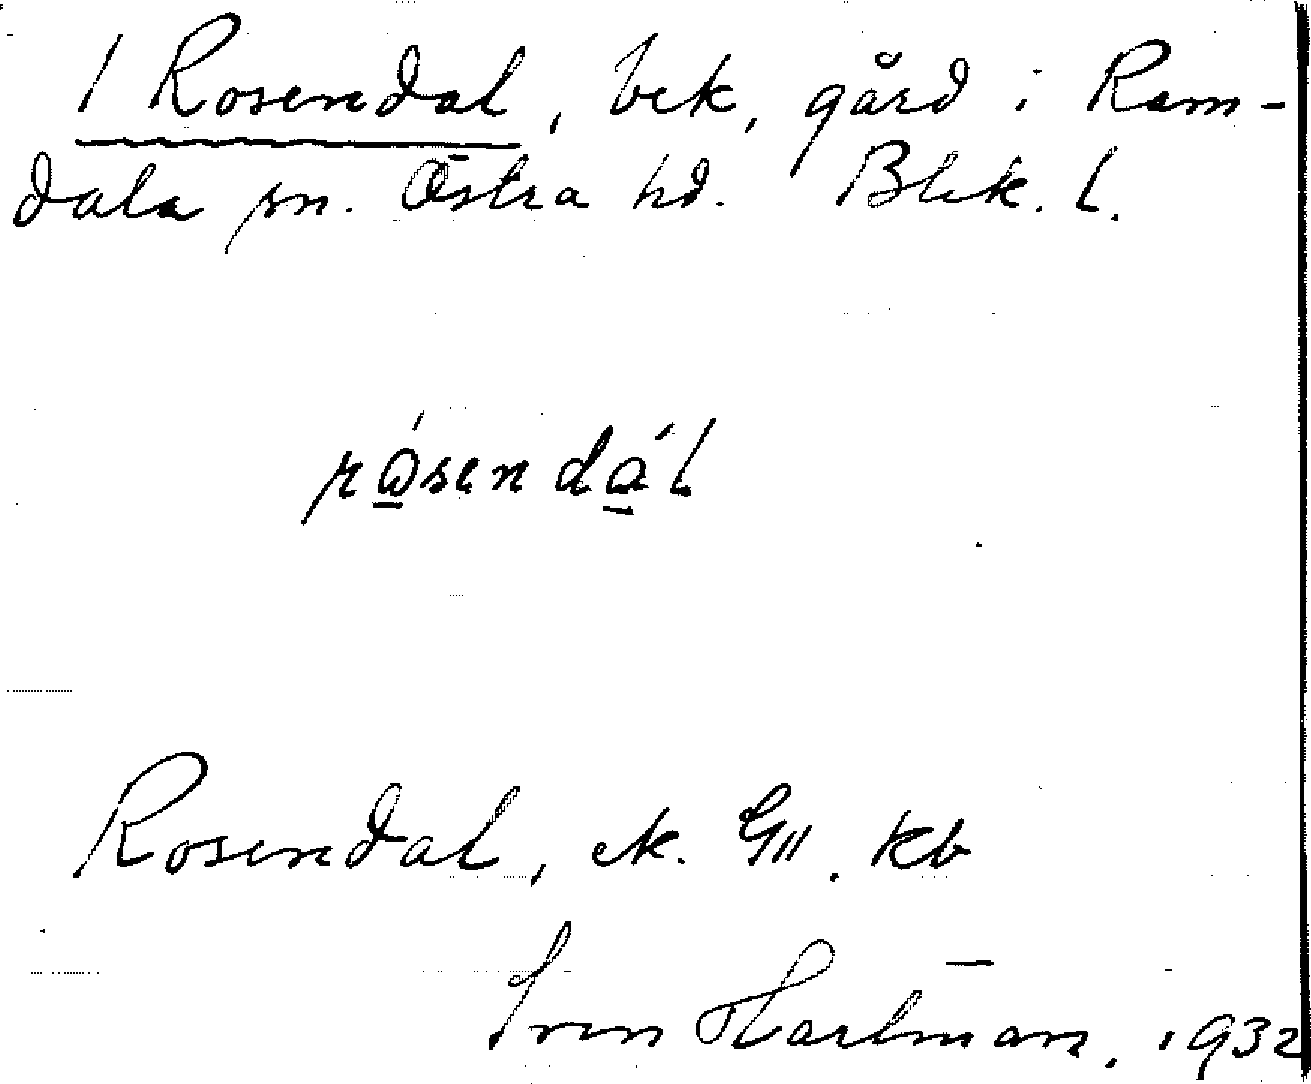 1 Rosendal, bek, gård i Ram-
dala sn. Östra hd. Blek. l.
rósendál
Rosendal, ek. GII. kb
Sven Hartman. 1932